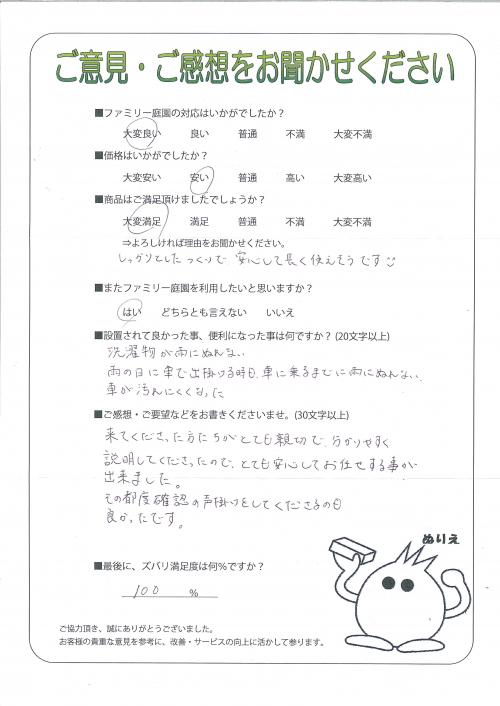 ご意見・ご感想をお聞かせください
■ファミリー庭園の対応はいかがでしたか？
大変良い 良い 普通 不満 大変不満
■価格はいかがでしたか？
大変安い 安い 普通 高い 大変高い
■商品はご満足頂けましたでしょうか？
大変満足 満足 普通 不満 大変不満
⇒よろしければ理由をお聞かせください。
しっかりとしたつくりで 安心して長く使えそうです
■またファミリー庭園を利用したいと思いますか？
はい どちらとも言えない いいえ
■設置されて良かった事、便利になった事は何ですか？(20文字以上)
洗濯物が雨にぬれない
雨の日に車で出掛ける時も、車に乗るまでに雨にぬれない
車が汚れにくくなった
■ご感想・ご要望などをお書きくださいませ。(30文字以上)
来てくださった方たちがとても親切で、分かりやすく
説明してくださったので、とても安心してお任せする事が
出来ました。
その都度確認の声掛けをしてくださるのも
良かったです。
ぬりえ
■最後に、ズバリ満足度は何％ですか？
100 %
ご協力頂き、誠にありがとうございました。
お客様の貴重な意見を参考に、改善・サービスの向上に活かして参ります。